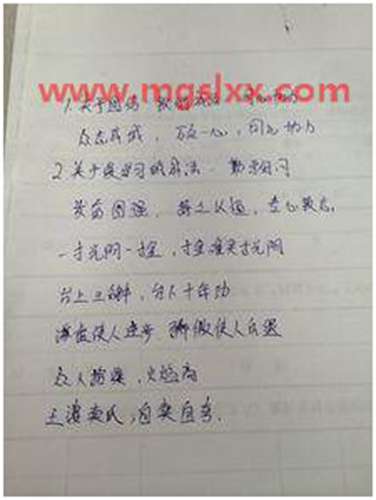 www.mgslxx.com
1.关于团结
众志成城,万众一心,同心协力
2.关于学习的 勤学好问
发奋图强,持之以恒,专心致志
一寸光阴一寸金,寸金难买寸光阴
台上三分钟,台下十年功
使人进步 骄傲使人落后
众人拾柴,火焰高
王婆卖瓜,自卖自夸.